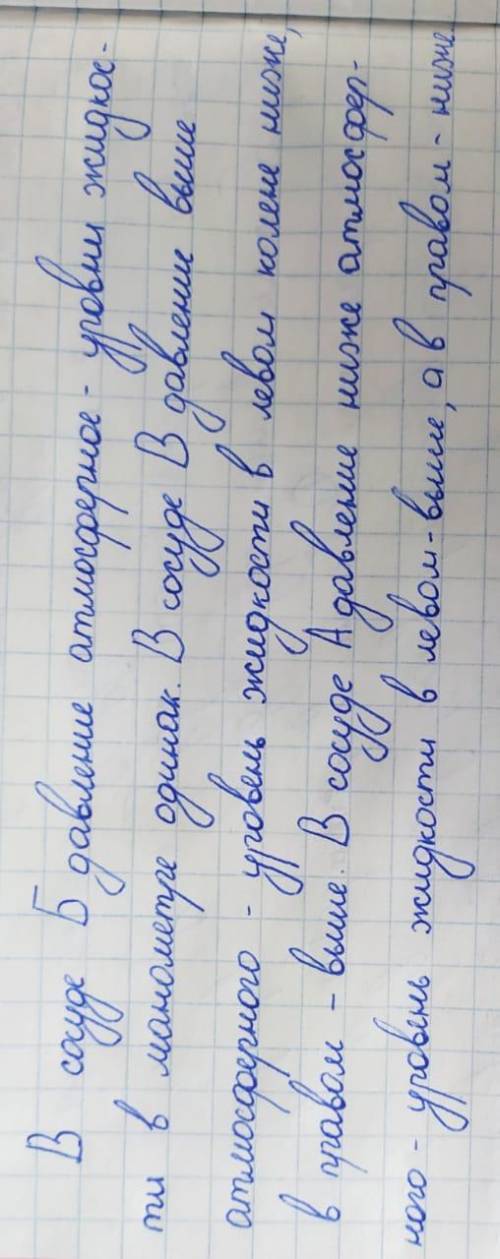 В сосуде Б давление атмосферное - уровни жидкос-
ти в манометре одинак. В сосуде В давление выше
атмосферного - уровень жидкости в левом колене ниже,
в правом - выше. В сосуде А давление ниже атмосфер-
ного - уровень жидкости в левом - выше, а в правом - ниже